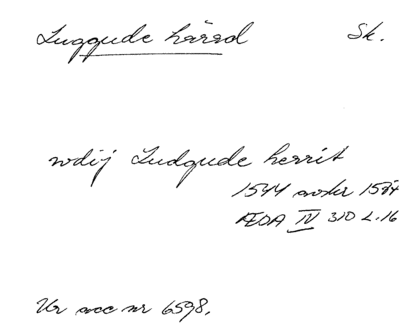 Luggude härad Sk.
wdij Ludgude herrit
1544 avskr 1584
ÆDA IV 310 L. 16
Ur acc nr 6598.